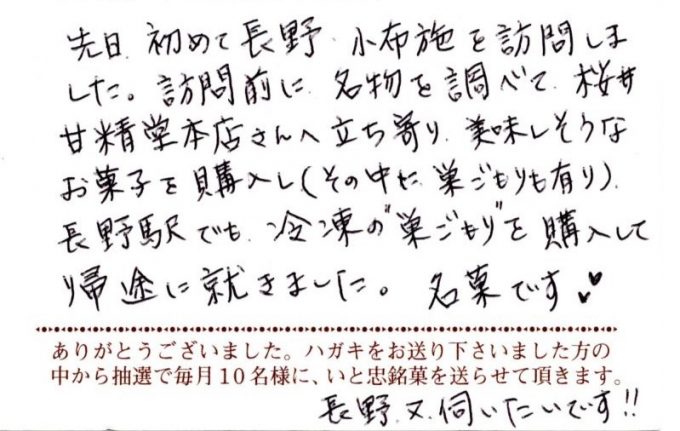 先日、初めて長野・小布施を訪問しま
した。訪問前に、名物を調べて、桜井
甘精堂本店さんへ立ち寄り、美味しそうな
お菓子を購入し(その中に、巣ごもりも有り)、
長野駅でも、冷凍の"巣ごもり"を購入して
帰途に就きました。名菓です♥♥
ありがとうございました。ハガキをお送り下さいました方の
中から抽選で毎月10名様に、いと忠銘菓を送らせて頂きます。
長野、又、伺いたいです!!